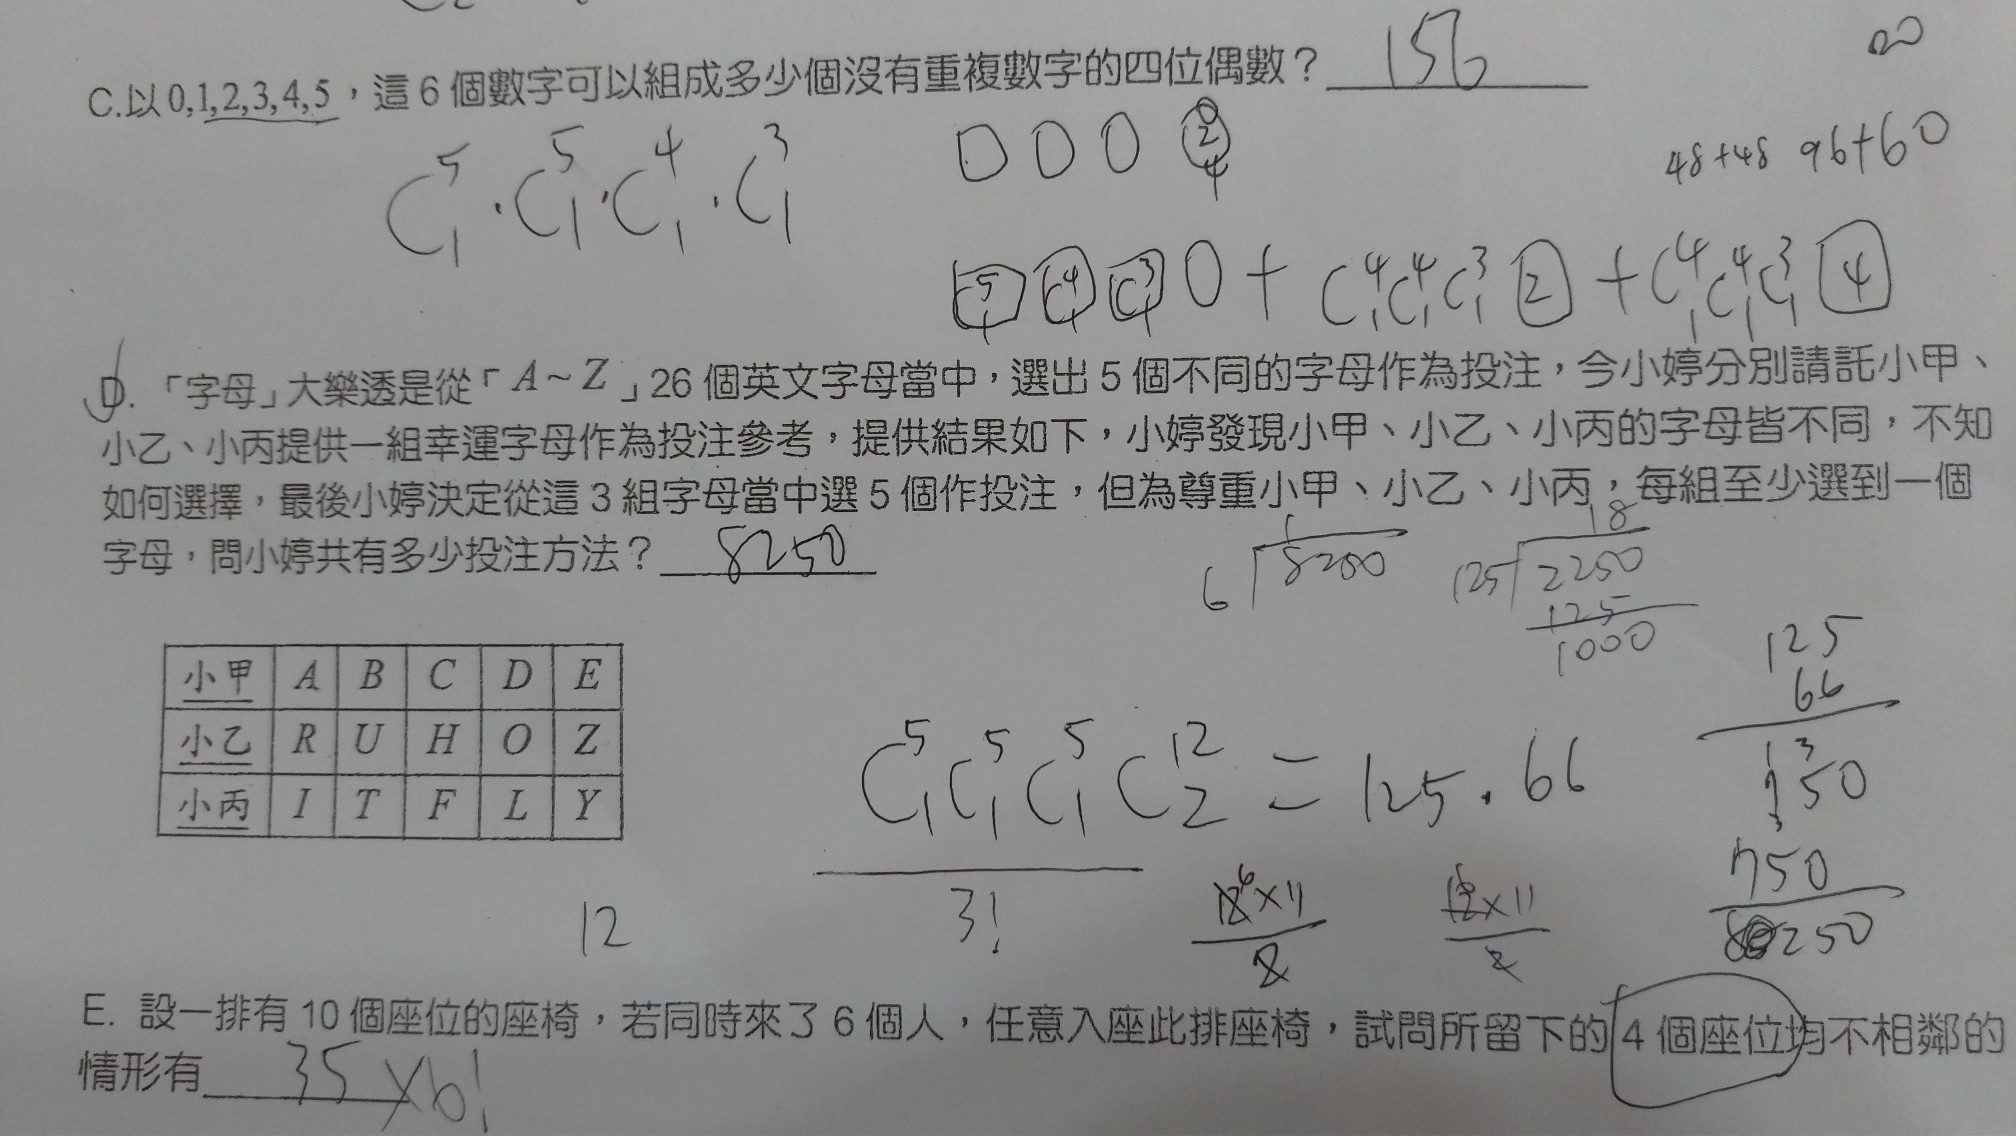 C.以0,1,2,3,4,5，這6個數字可以組成多少個沒有重複數字的四位偶數？ 156
48+48 96+60
C⁵₁·C⁵₁·C⁴₁·C³₁
0 2 4
C⁵₁ C⁴₁ C³₁ 0 + C⁴₁C⁴₁C³₁ 2 + C⁴₁C⁴₁C³₁ 4
D.「字母」大樂透是從「A~Z」26個英文字母當中，選出5個不同的字母作為投注，今小婷分別請託小甲、
小乙、小丙提供一組幸運字母作為投注參考，提供結果如下，小婷發現小甲、小乙、小丙的字母皆不同，不知
如何選擇，最後小婷決定從這3組字母當中選5個作投注，但為尊重小甲、小乙、小丙，每組至少選到一個
字母，問小婷共有多少投注方法？ 8250
1
6 8200
18
125 2250
125
1000
小甲 A B C D E
小乙 R U H O Z
小丙 I T F L Y
C⁵₁C⁵₁C⁵₁C¹²₂ = 125·66
3!
125
66
750
750
8250
12
12 6 ×11
2
12×11
2
E. 設一排有10個座位的座椅，若同時來了6個人，任意入座此排座椅，試問所留下的4個座位均不相鄰的
情形有 35×6!